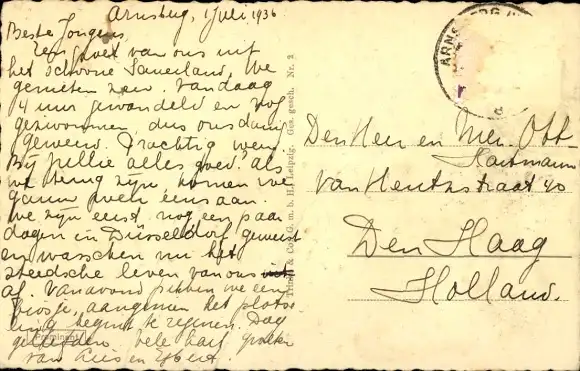 Arnsberg, 1 Juli 1936
Beste Jongens,
Een groet van ons uit
het schoone Sauerland. We
genieten zeer. Vandaag
4 uur gewandeld en nog
gezwommen, dus ons dani
geweerd. Prachtig weer.
Bij jullie alles goed? als
we terug zijn, komen we
gauw weer eens aan.
We zijn eerst nog een paar
dagen in Düsseldorf geweest
en wasschen nu het
steedsche leven van ons
af. Vanavond pikken we een
biosje, aangezien het plotse
ling begint te regenen. Dag
geliefden. vele hart. groeten
van Kees en Egbert.
Trinks & Co. G. m. b. H., Leipzig. Ges. gesch. Nr. 2
ARNSBERG
Den Heer en Mevr. Ott-
Kaitmann
van Heutszstraat 40
Den Haag
Holland.